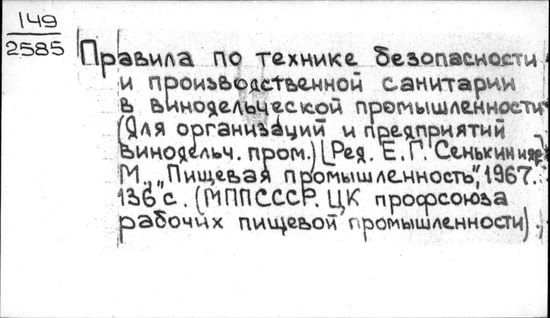 149
2585
Правила по технике безопасности
и производственной санитарии
в винодельческой промышленности
(Для организаций и предприятий
винодельч. пром.) [Ред. Е.Г. Сенькин и др.
М., "Пищевая промышленность", 1967.
136 с. (МППСССР. ЦК профсоюза
рабочих пищевой промышленности).